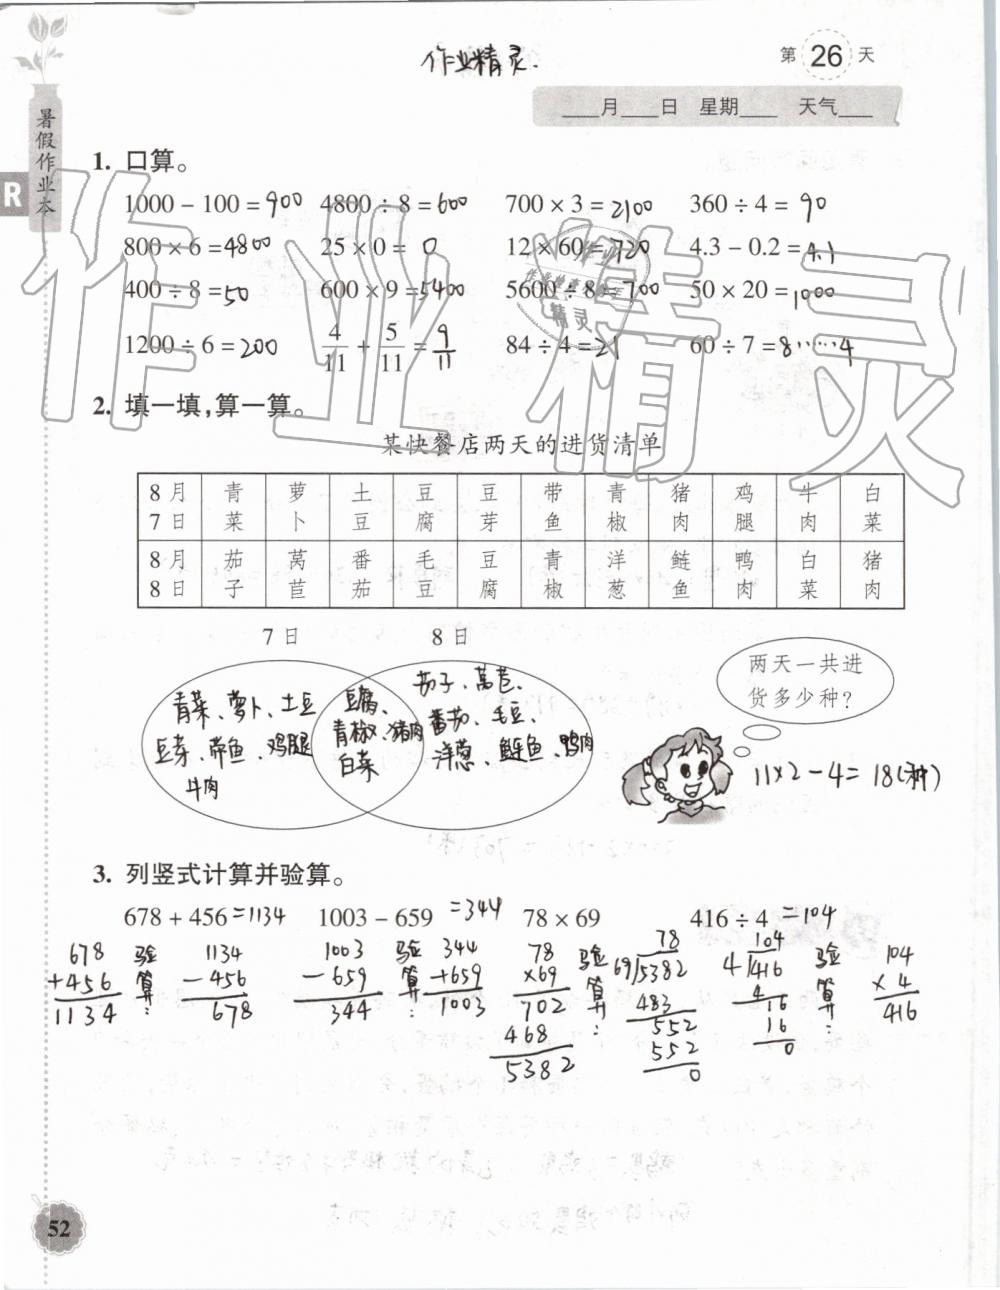 作业精灵.
第 26 天
___月___日 星期___ 天气___
暑假作业本
R
1. 口算。
1000 − 100 = 900 4800 ÷ 8 = 600 700 × 3 = 2100 360 ÷ 4 = 90
800 × 6 = 4800 25 × 0 = 0 12 × 60 = 720 4.3 − 0.2 = 4.1
400 ÷ 8 = 50 600 × 9 = 5400 5600 ÷ 8 = 700 50 × 20 = 1000
1200 ÷ 6 = 200 4/11 + 5/11 = 9/11 84 ÷ 4 = 21 60 ÷ 7 = 8……4
2. 填一填,算一算。
某快餐店两天的进货清单
8月7日 青菜 萝卜 土豆 豆腐 豆芽 带鱼 青椒 猪肉 鸡腿 牛肉 白菜
8月8日 茄子 莴苣 番茄 毛豆 豆腐 青椒 洋葱 鲢鱼 鸭肉 白菜 猪肉
7日 8日
青菜、萝卜、土豆
豆芽、带鱼、鸡腿
牛肉
豆腐、
青椒、猪肉
白菜
茄子、莴苣、
番茄、毛豆、
洋葱、鲢鱼、鸭肉
两天一共进
货多少种?
11×2−4=18(种)
3. 列竖式计算并验算。
678 + 456 =1134 1003 − 659 =344 78 × 69 416 ÷ 4 =104
678
+456
1134
验算:
1134
−456
678
1003
−659
344
验算:
344
+659
1003
78
×69
702
468
5382
验算:
78
69)5382
483
552
552
0
104
4)416
4
16
16
0
验算:
104
×4
416
52
作业精灵